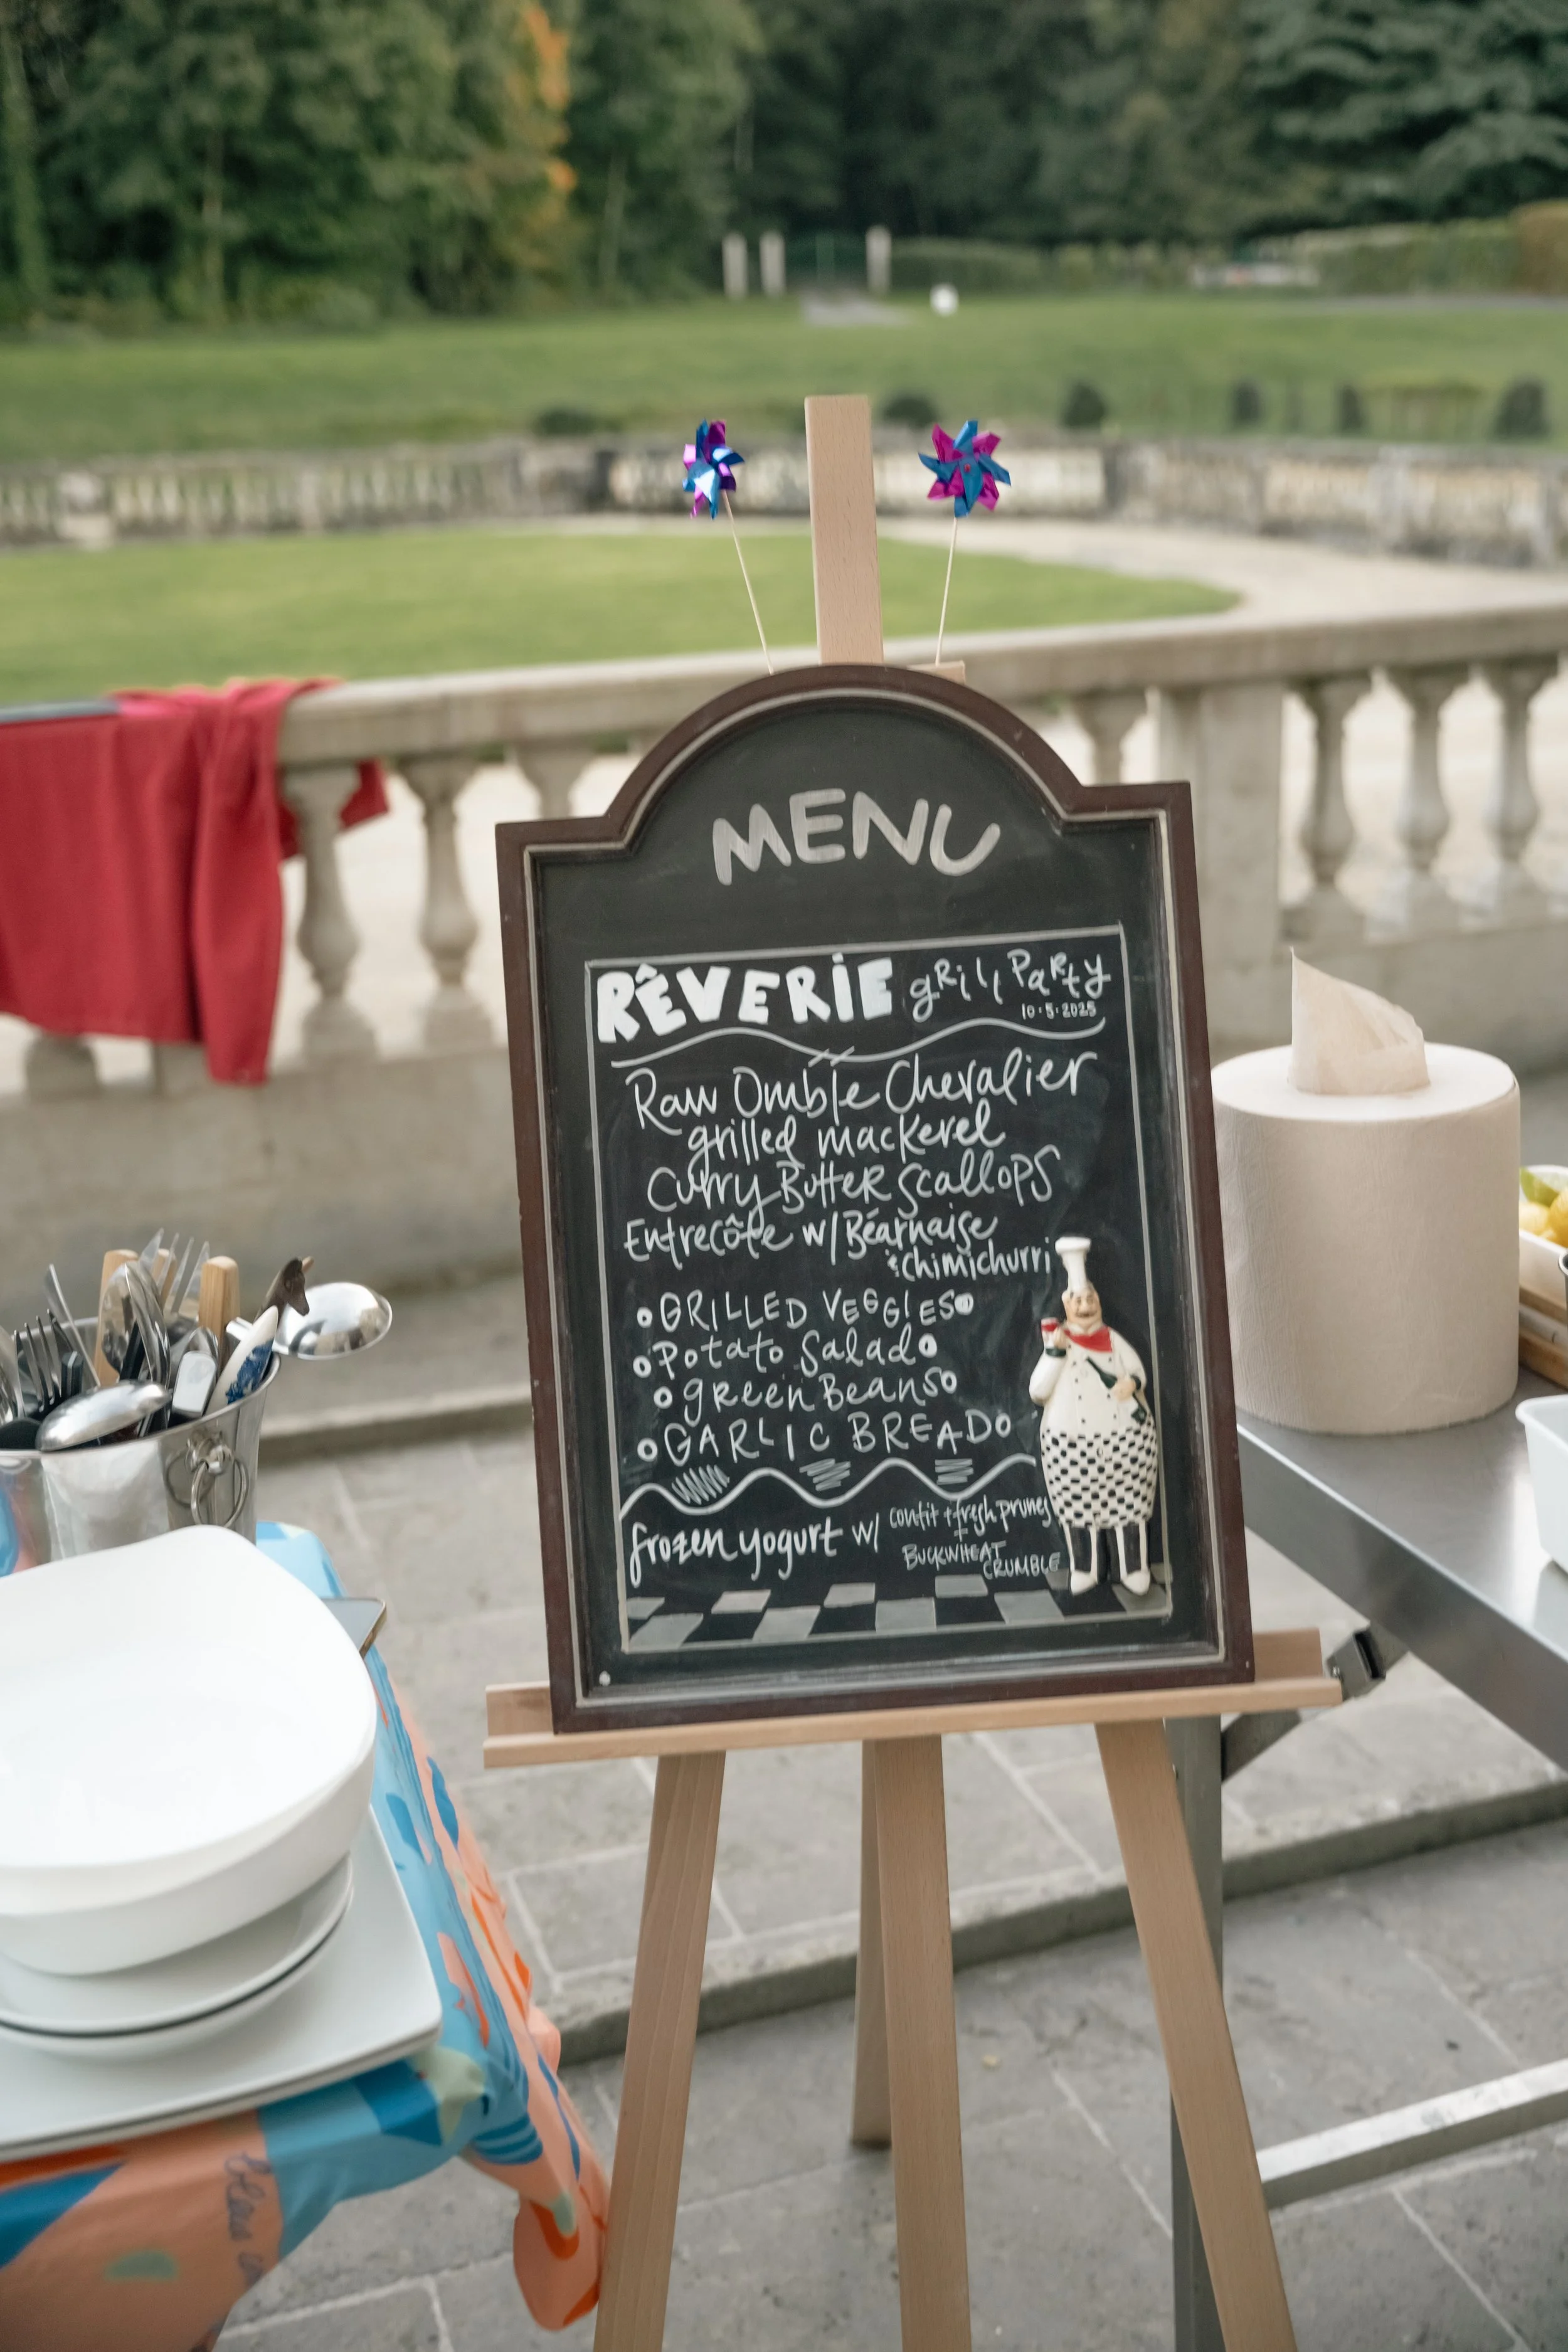 MENU
RÊVERIE grill Party
10·5·2025
Raw Omble Chevalier
grilled mackerel
Curry Butter Scallops
Entrecôte w/ Béarnaise
& chimichurri
GRILLED VEGGIES
Potato Salad
green Beans
GARLIC BREAD
frozen yogurt w/ confit + fresh prunes
+
BUCKWHEAT
CRUMBLE